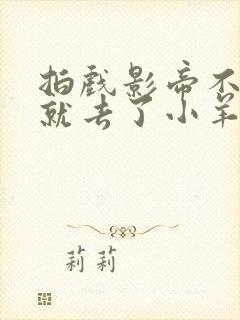 拍戏影帝不
就去了小羊
莉莉